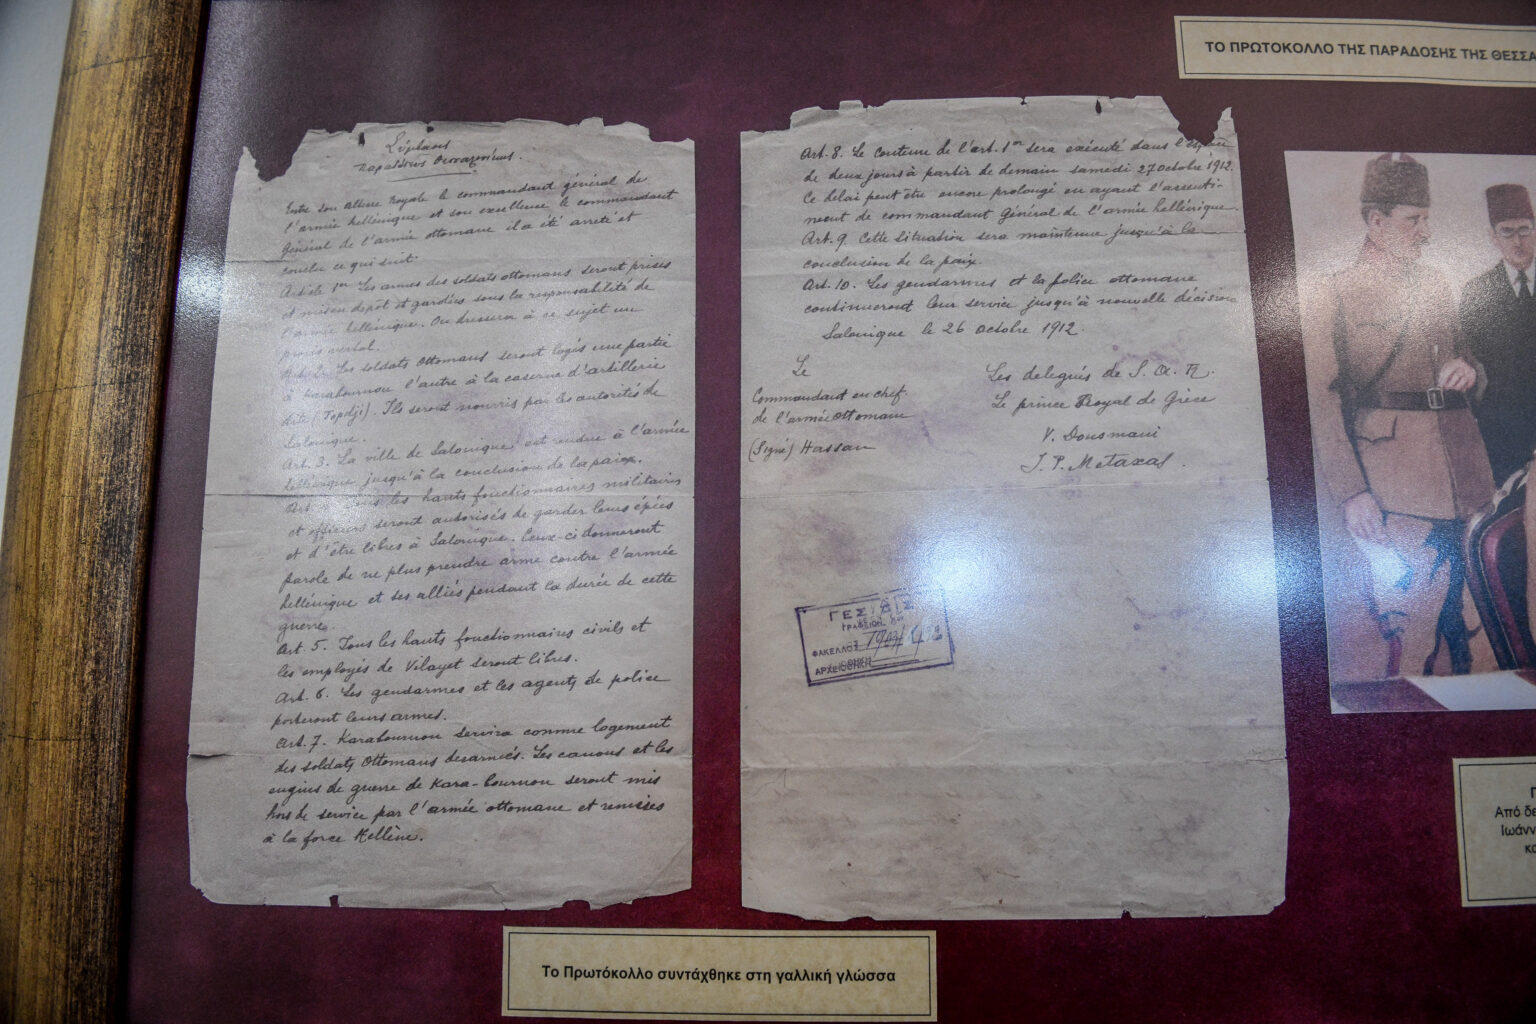 ΤΟ ΠΡΩΤΟΚΟΛΛΟ ΤΗΣ ΠΑΡΑΔΟΣΗΣ ΤΗΣ ΘΕΣΣΑ
Σύμβασις
παραδόσεως Θεσσαλονίκης.
Entre Son Altesse Royale le commandant général de
l'armée hellénique et son excellence le commandant
Général de l'armée ottomane il a été arrêté et
conclu ce qui suit.
Article 1er Les armes des soldats ottomans seront prises
et mises en depôt et gardées sous la responsabilité de
l'armée hellénique. On dressera à ce sujet un
procès verbal.
Art. 2. Les soldats Ottomans seront logés une partie
à Karabournou l'autre à la caserne d'artillerie
dite (Topdji). Ils seront nourris par les autorités de
Salonique.
Art. 3. La ville de Salonique est rendue à l'armée
hellénique jusqu'à la conclusion de la paix.
Art. 4. Tous les hauts fonctionnaires militaires
et officiers seront autorisés de garder leurs épées
et d'être libres à Salonique. Ceux-ci donneront
parole de ne plus prendre arme contre l'armée
hellénique et ses alliés pendant la durée de cette
guerre.
Art. 5. Tous les hauts fonctionnaires civils et
les employés de Vilayet seront libres.
Art. 6. Les gendarmes et les agents de police
porteront leurs armes.
Art. 7. Karabournou servira comme logement
des soldats Ottomans desarmés. Les canons et les
engins de guerre de Kara-bournou seront mis
hors de service par l'armée ottomane et remises
à la force Hellène.
Art. 8. Le contenu de l'art. 1er sera exécuté dans l'espace
de deux jours à partir de demain samedi 27 octobre 1912.
Ce delai peut être encore prolongé en ayant l'assenti-
ment de commandant Général de l'armée hellénique.
Art. 9. Cette situation sera maintenue jusqu'à la
conclusion de la paix.
Art. 10. Les gendarmes et la police ottomane
continueront leur service jusqu'à nouvelle décision
Salonique le 26 octobre 1912.
Le
Commandant en chef
de l'armée Ottomane
(Signé) Hassan
Les delegués de S. A. R.
Le prince Royal de Grèce
V. Dousmani
J. P. Metaxas.
ΓΕΣ/ΔΙΣ
ΦΑΚΕΛΛΟΣ
Το Πρωτόκολλο συντάχθηκε στη γαλλική γλώσσα
Από δε
Ιωάνν
κα